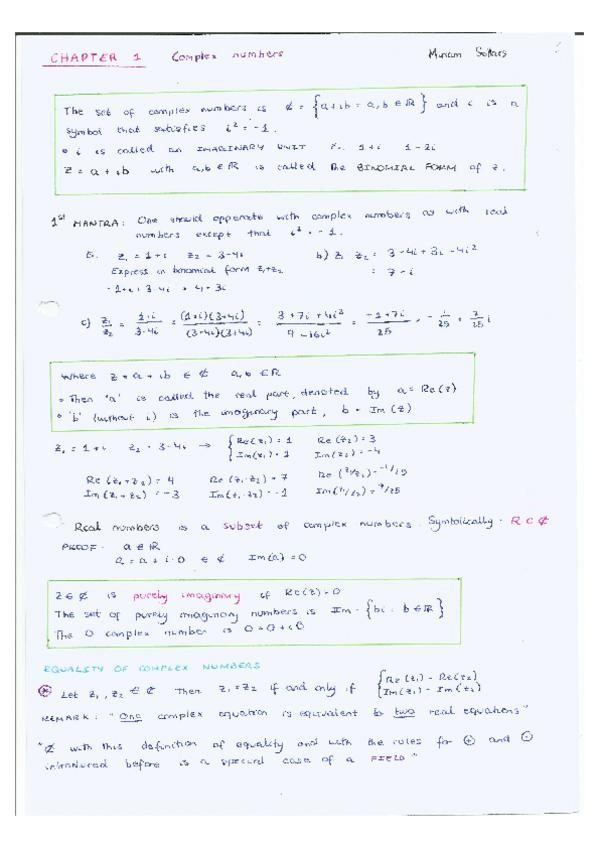 CHAPTER 1 Complex numbers
The set of complex numbers is ₵ = {a+ib = a,b ∈ ℝ} and i is a
symbol that satisfies i² = -1.
• i is called an IMAGINARY UNIT 1+i 1-2i
Z = a + ib with a,b ∈ ℝ is called the BINOMIAL FORM of z.
1st MANTRA: One should opperate with complex numbers as with real
numbers except that i² = -1.
z₁ = 1+i z₂ = 3-4i b) z₁ z₂ = 3-4i+3i-4i²
Express in binomial form z₁+z₂ = 7-i
= 1+i+3-4i = 4-3i
c) z₁/z₂ = 1+i/3-4i = (1+i)(3+4i)/(3-4i)(3+4i) = 3+7i+4i²/9-16i² = -1+7i/25 = -1/25 + 7/25 i
Where z = a + ib ∈ ₵ a,b ∈ ℝ
• Then 'a' is called the real part, denoted by a = Re(z)
• 'b' (without i) is the imaginary part, b = Im(z)
z₁ = 1+i z₂ = 3-4i → {Re(z₁) = 1 Re(z₂) = 3
{Im(z₁) = 1 Im(z₂) = -4
Re(z₁+z₂) = 4 Re(z₁·z₂) = 7 Re(z₁/z₂) = -1/25
Im(z₁+z₂) = -3 Im(z₁·z₂) = -1 Im(z₁/z₂) = 7/25
Real numbers is a subset of complex numbers. Symbolically: R ⊂ ₵
PROOF: a ∈ ℝ
a = a+i·0 ∈ ₵ Im(a) = 0
Z ∈ ₵ is purely imaginary if Re(z) = 0
The set of purely imaginary numbers is Im = {bi : b ∈ ℝ}
The 0 complex number is 0 = 0+i0
EQUALITY OF COMPLEX NUMBERS
Let z₁, z₂ ∈ ₵ Then z₁ = z₂ if and only if {Re(z₁) = Re(z₂)
{Im(z₁) = Im(z₂)
REMARK: "One complex equation is equivalent to two real equations"
"₵ with this definition of equality and with the rules for ⊕ and ⊙
introduced before is a special case of a FIELD"